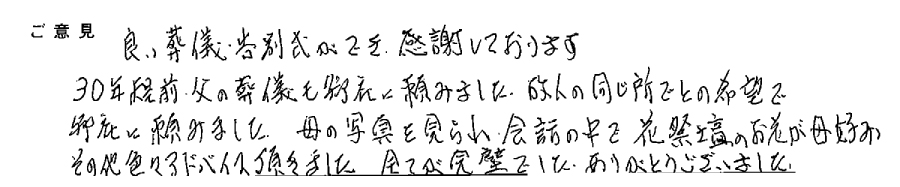 ご意見
良い葬儀・告別式ができ、感謝しております
30年程前、父の葬儀も御社に頼みました。故人の同じ所でとの希望で
御社に頼みました。母の写真を見られ、会話の中で花祭壇のお花が母好み
その他色々アドバイス頂きました。全てが完璧でした。ありがとうございました。